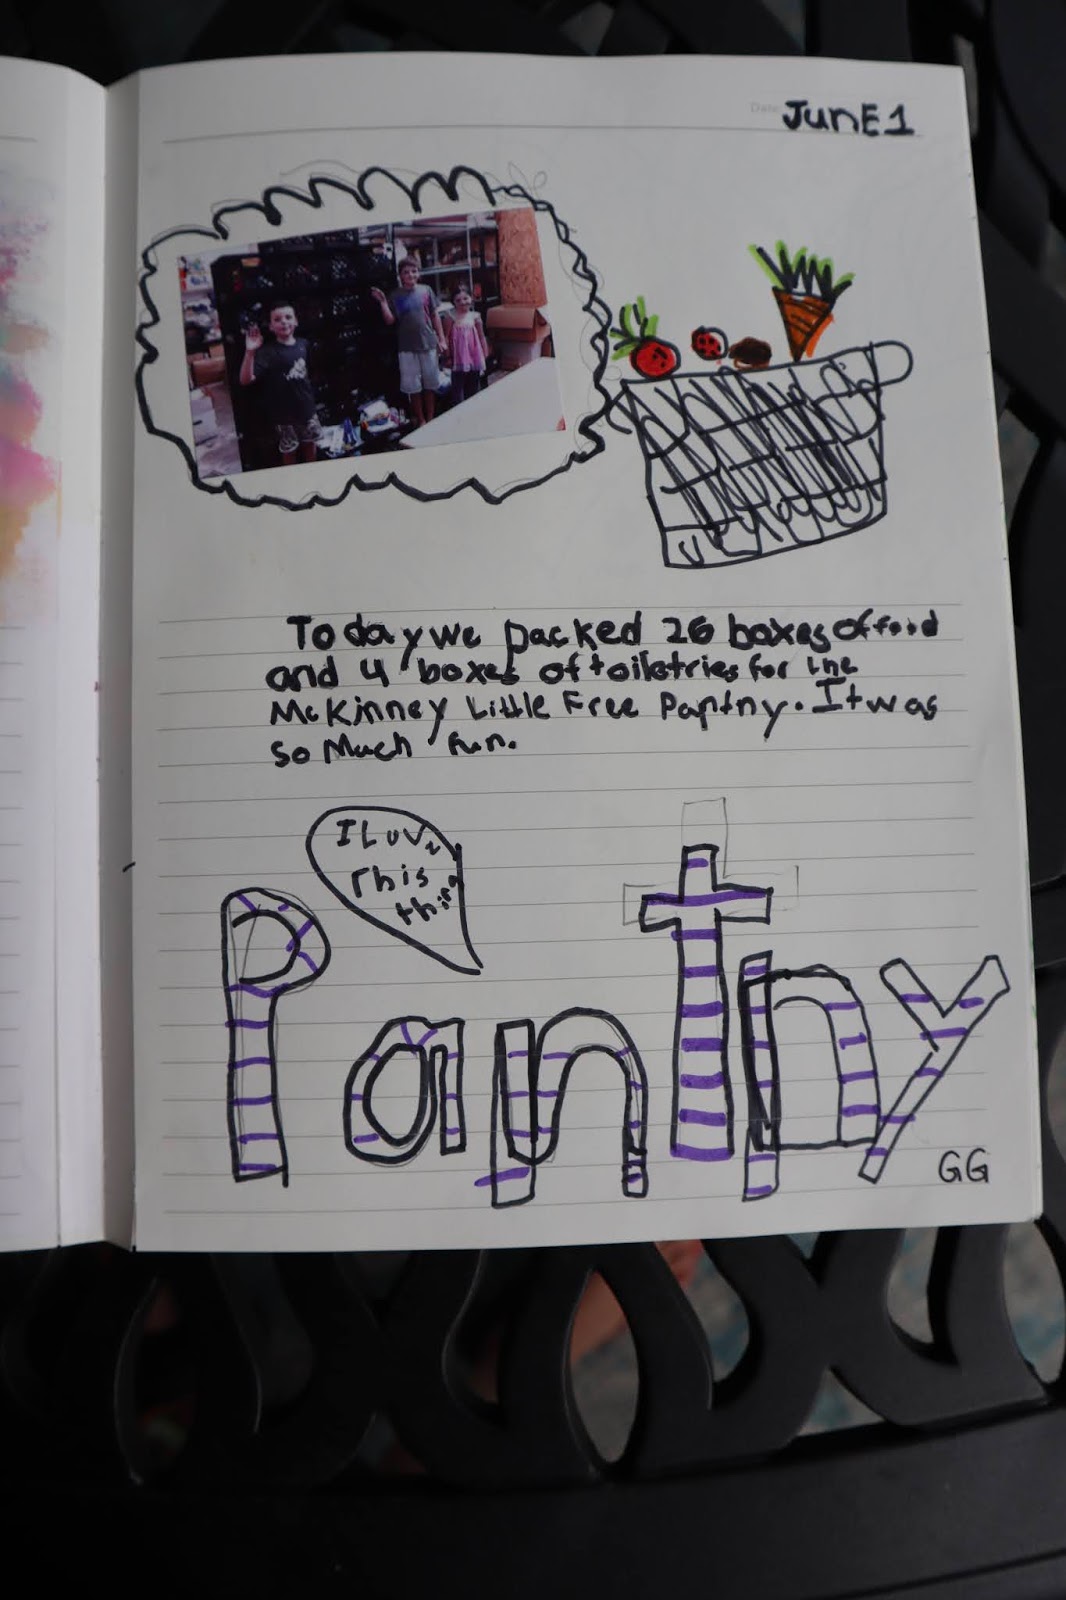 Date:
JunE 1
Today we packed 26 boxes of food
and 4 boxes of toiletries for the
McKinney Little Free Pantry. It was
so Much fun.
I Luv
This
thing
Pantry
GG